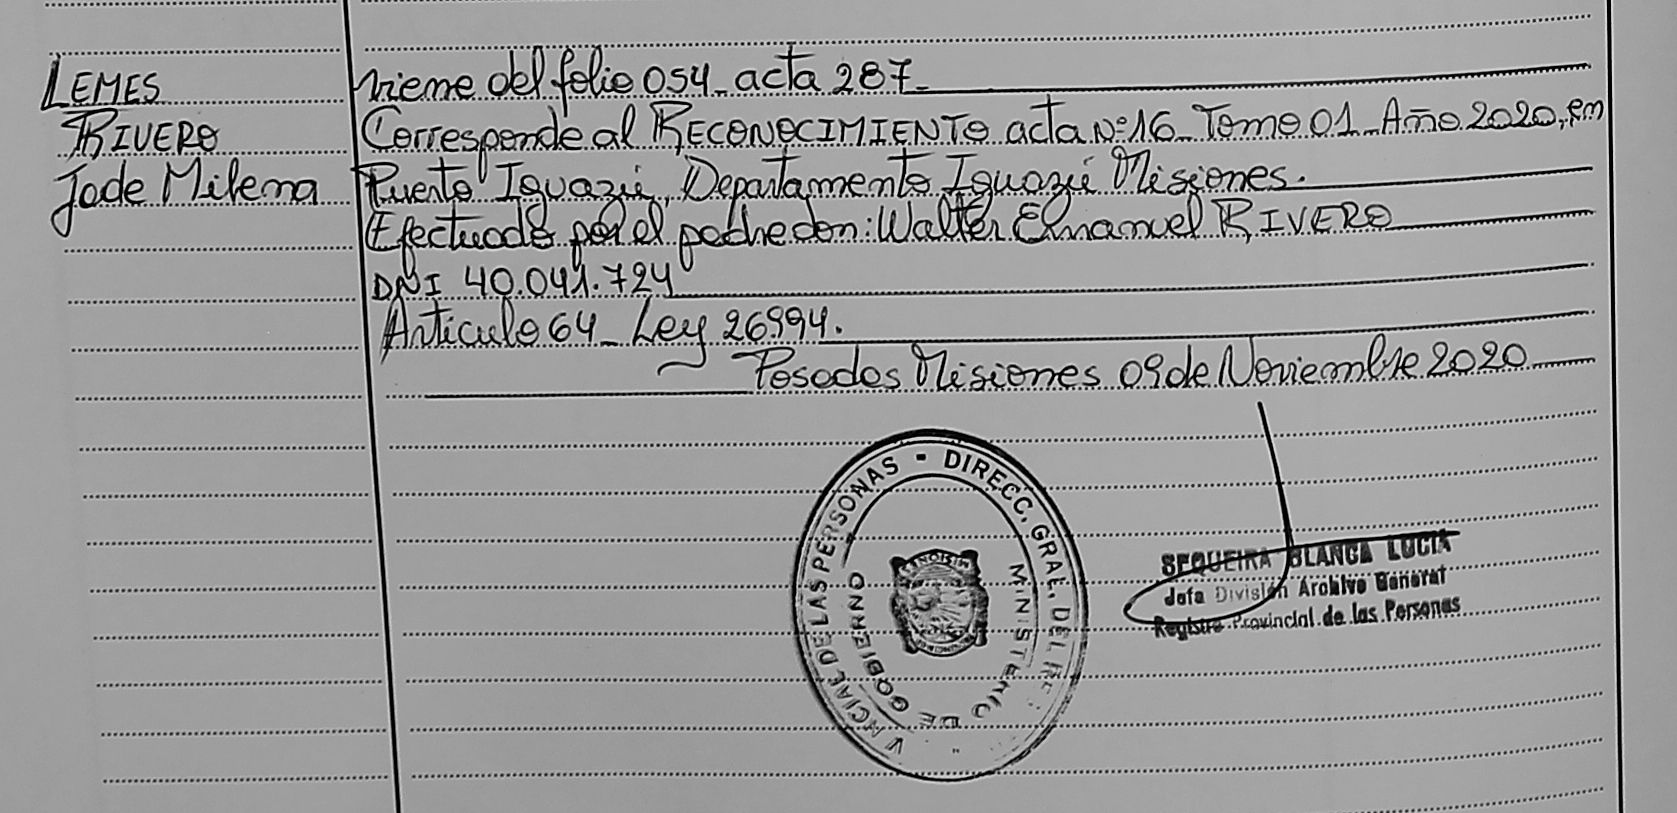 LEMES
RIVERO
Jade Milena
viene del folio 054_ acta 287_
Corresponde al RECONOCIMIENTO acta Nº16_ Tomo 01_ Año 2020, en
Puerto Iguazú, Departamento Iguazú Misiones.
Efectuado por el padre don: Walter Emanuel RIVERO
DNI 40.041.724
Articulo 64_ Ley 26994.
Posadas Misiones 09 de Noviembre 2020
VINCIAL DE LAS PERSONAS - DIRECC. GRAL. DEL
MINISTERIO DE GOBIERNO
SEQUEIRA BLANCA LUCIA
Jefa División Archivo General
Registro Provincial de las Personas